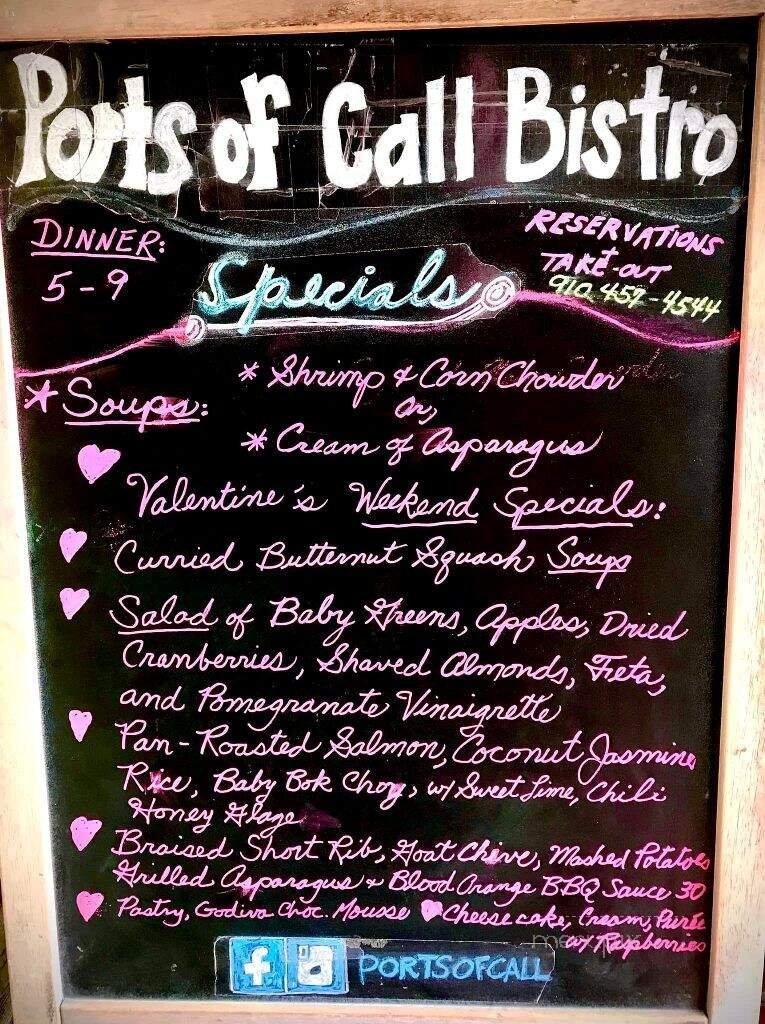 Ports of Call Bistro
DINNER:
5-9
Specials
RESERVATIONS
+
TAKE-OUT
910 457-4544
* Shrimp & Corn Chowder
* Soups:
or,
* Cream of Asparagus
Valentine's Weekend Specials:
Curried Butternut Squash Soup
Salad of Baby Greens, Apples, Dried
Cranberries, Shaved Almonds, Feta,
and Pomegranate Vinaigrette
Pan-Roasted Salmon, Coconut Jasmine
Rice, Baby Bok Choy, w/ Sweet Lime, Chili
Honey Glaze
Braised Short Rib, Goat Chevre, Mashed Potatoes
Grilled Asparagus & Blood Orange BBQ Sauce 30
Pastry, Godiva Choc. Mousse Cheesecake, Cream, Purée
w/ Raspberries
f PORTSOFCALL